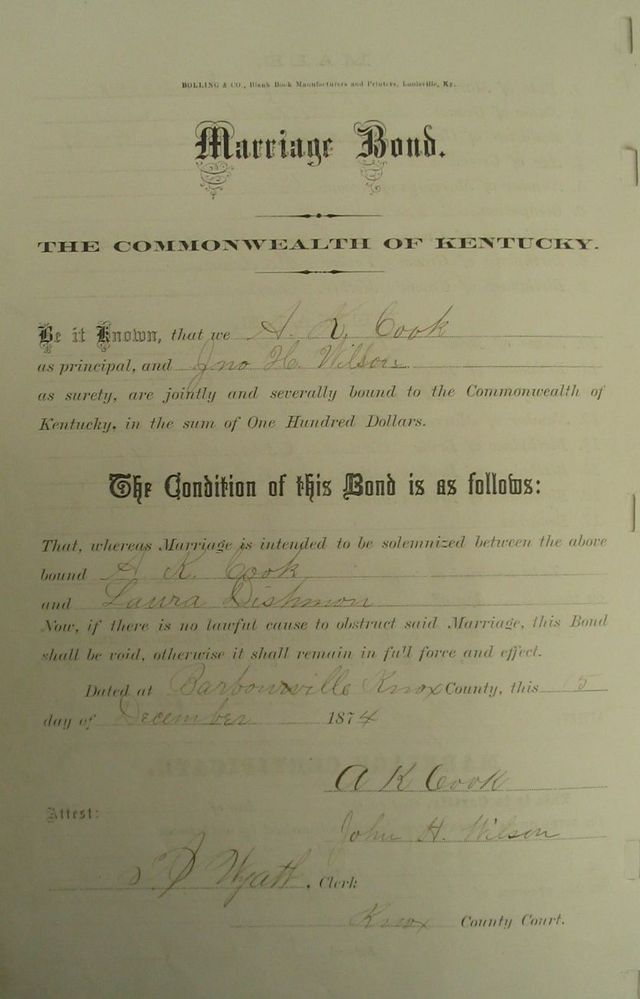 BOLLING & CO., Blank Book Manufacturers and Printers, Louisville, Ky.
Marriage Bond.
THE COMMONWEALTH OF KENTUCKY.
Be it Known, that we A. K. Cook
as principal, and Jno H. Wilson
as surety, are jointly and severally bound to the Commonwealth of
Kentucky, in the sum of One Hundred Dollars.
The Condition of this Bond is as follows:
That, whereas Marriage is intended to be solemnized between the above
bound A K. Cook
and Laura Dishmon
Now, if there is no lawful cause to obstruct said Marriage, this Bond
shall be void, otherwise it shall remain in full force and effect.
Dated at Barbourville Knox County, this 15
day of December 1874
A K Cook
Attest:
John H. Wilson
Wyatt, Clerk
Knox County Court.